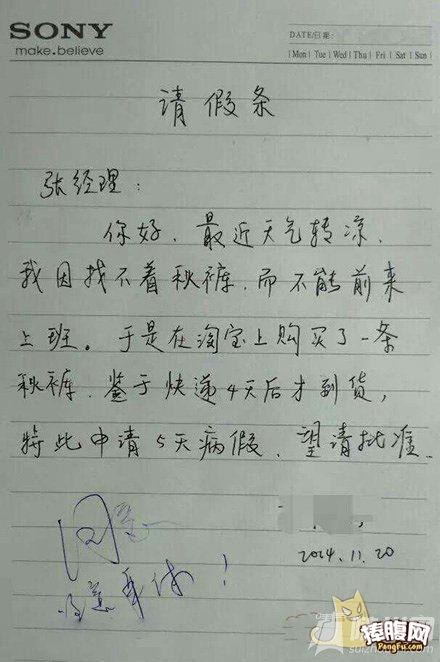 SONY
make.believe
DATE/日期:
Mon Tue Wed Thu Fri Sat Sun
请假条
张经理:
你好、最近天气转凉、
我因找不着秋裤、而不能前来
上班。于是在淘宝上购买了一条
秋裤、鉴于快递4天后才到货,
特此申请5天病假、望请批准、
同意
注意身体!
2024.11.20
捧腹网
PengFu.com